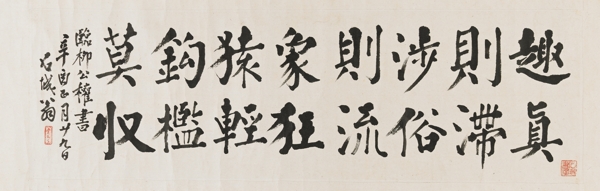 趣眞
則滯
涉俗
則流
象狂
猿輕
鈎檻
莫収
臨柳公權書
辛酉正月廿九日
石城翁